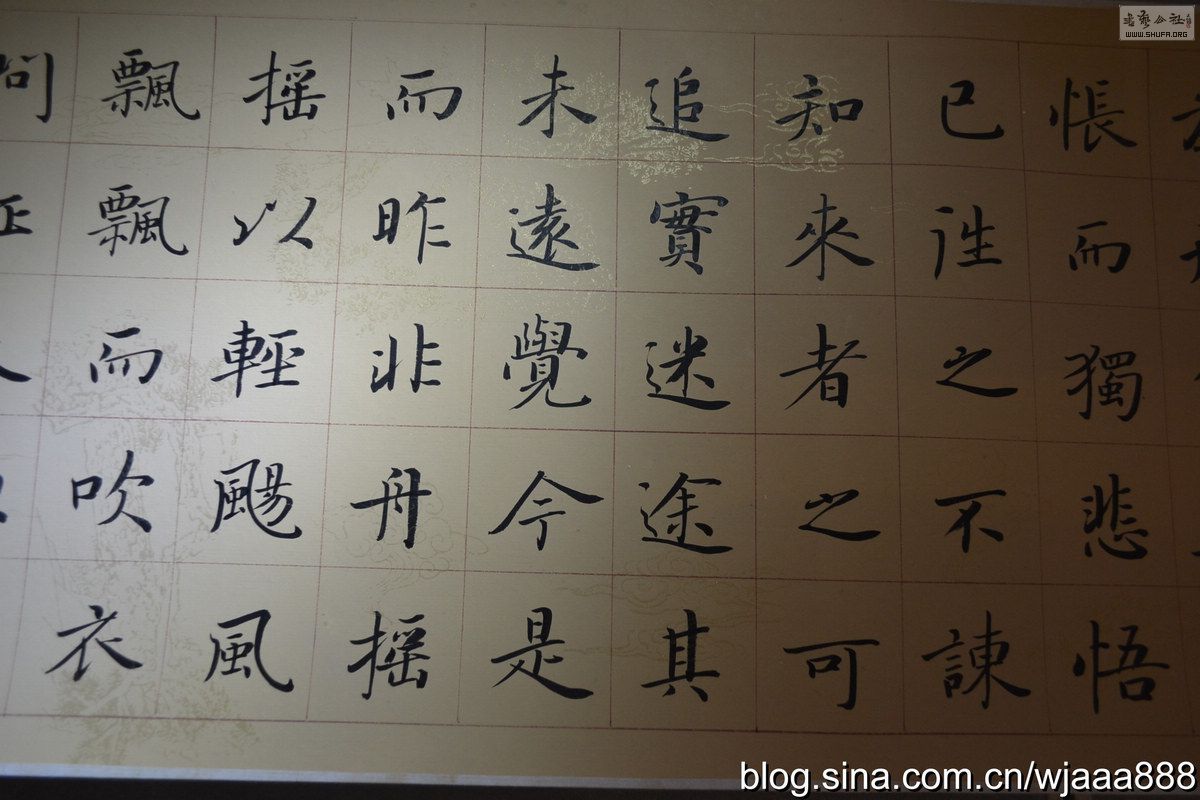 悵而獨悲悟
已往之不諫
知來者之可
追實迷途其
未遠覺今是
而昨非舟摇
摇以輕颺風
飄飄而吹衣
書藝公社
WWW.SHUFA.ORG
blog.sina.com.cn/wjaaa888